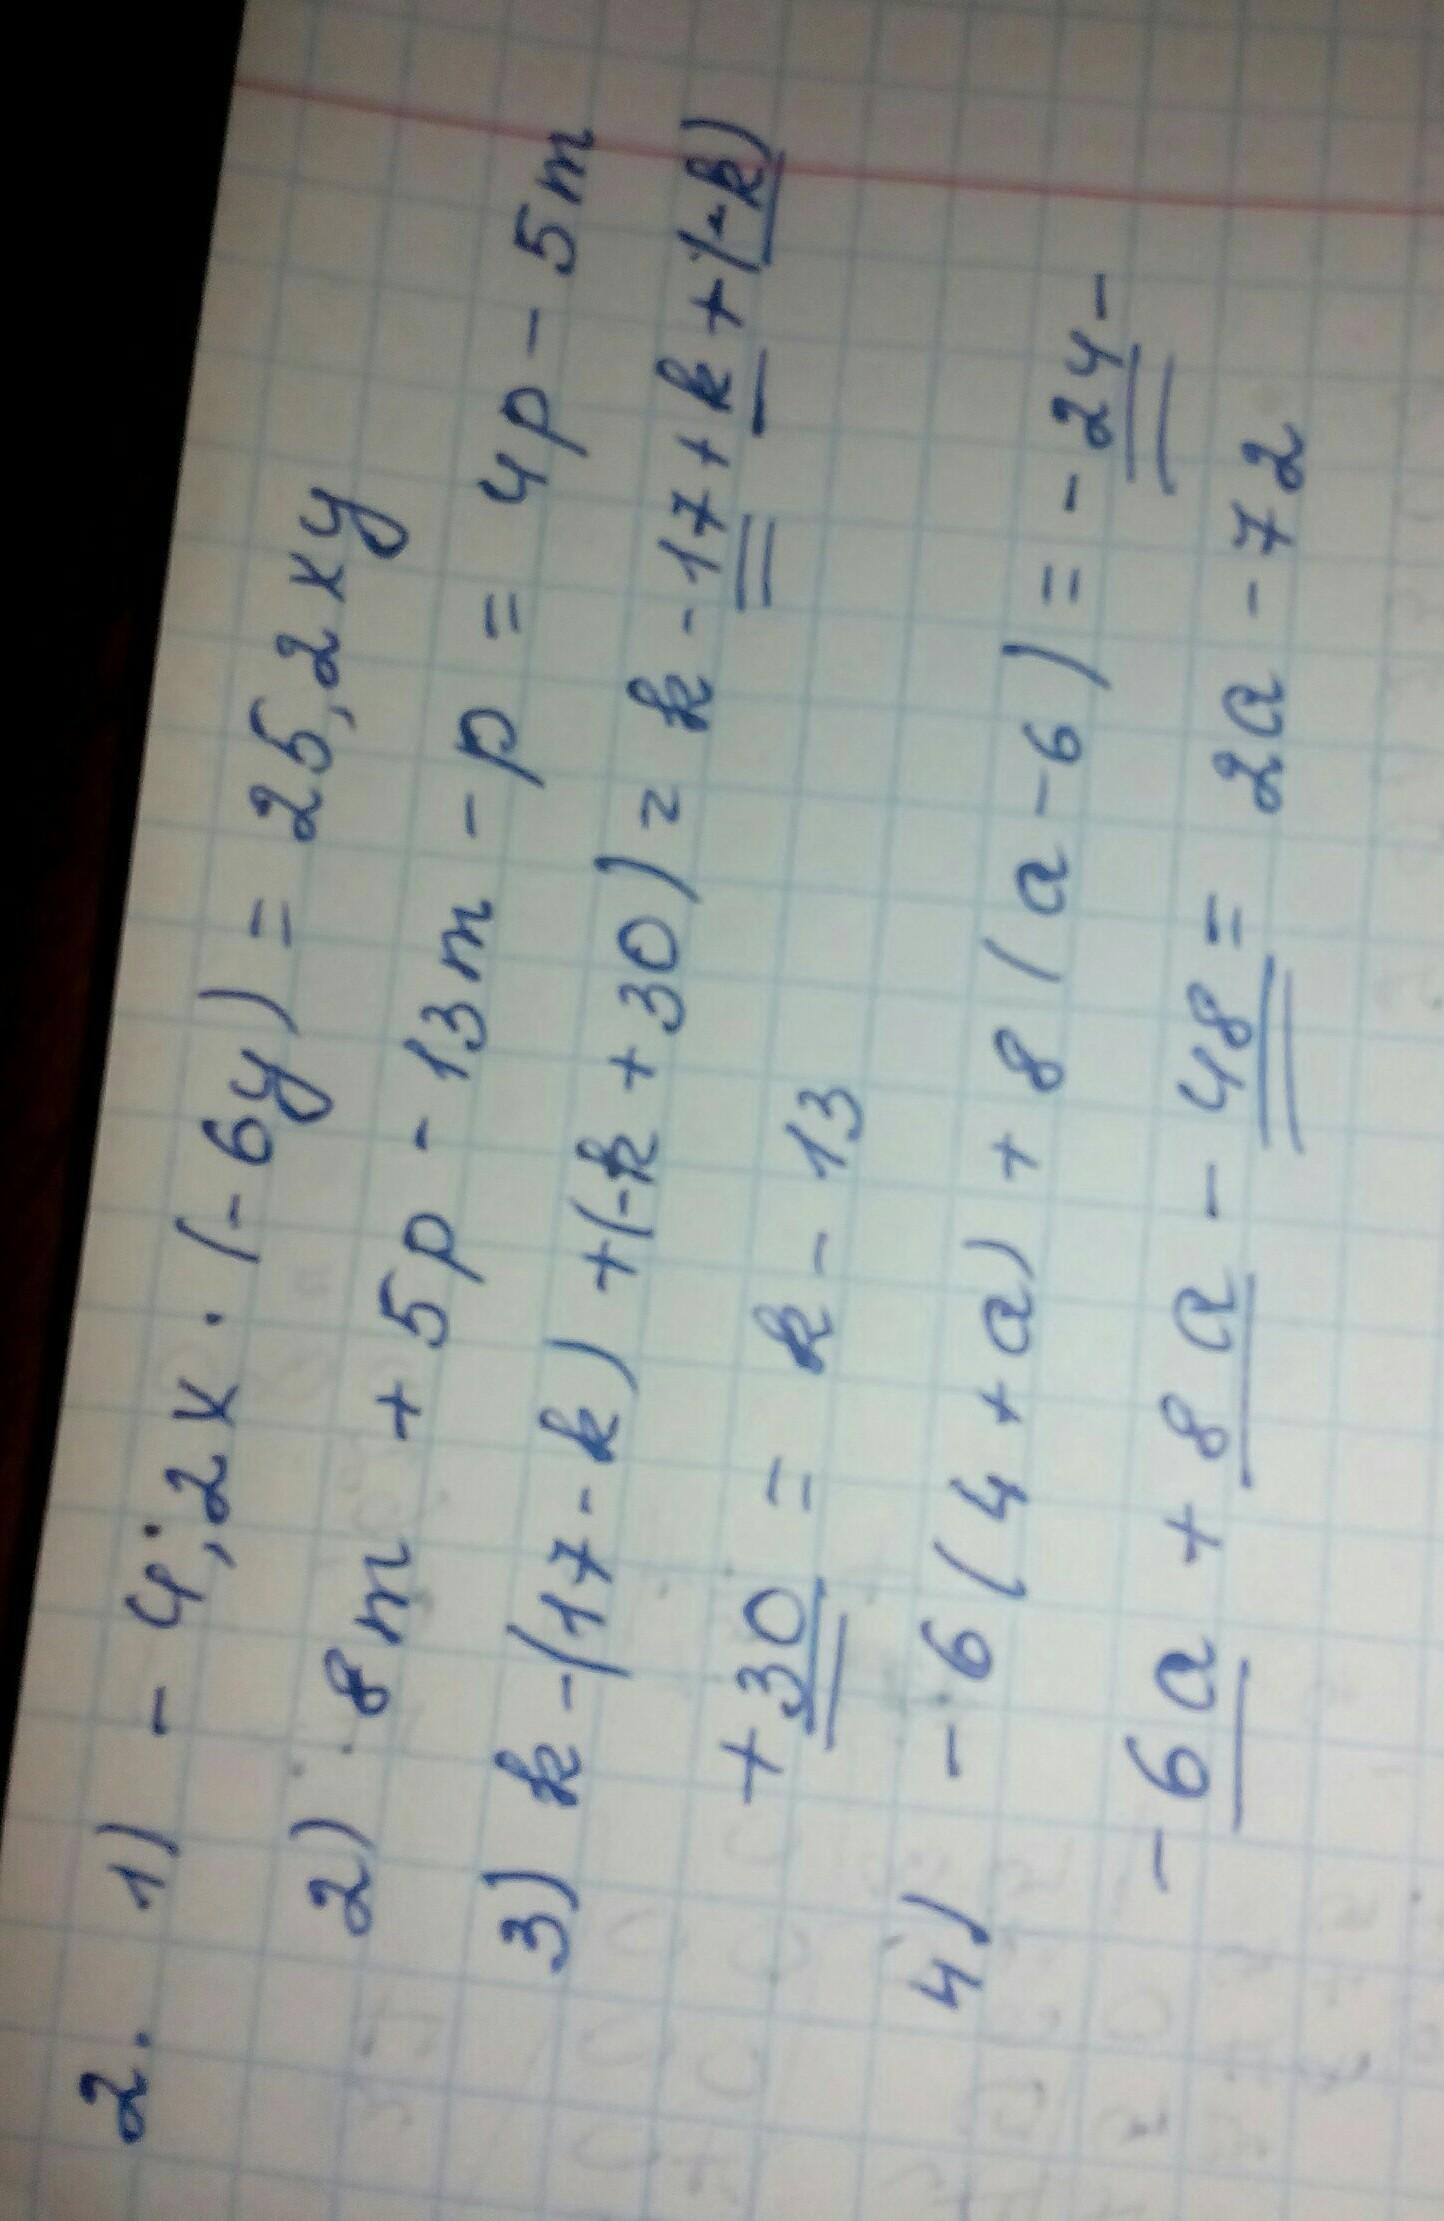 2. 1) - 4,2x · (- 6y) = 25,2xy
2) 8m + 5p - 13m - p = 4p - 5m
3) k - (17 - k) + (- k + 30) = k - 17 + k + (- k)
+ 30 = k - 13
4) - 6 (4 + a) + 8 (a - 6) = - 24 -
- 6a + 8a - 48 = 2a - 72